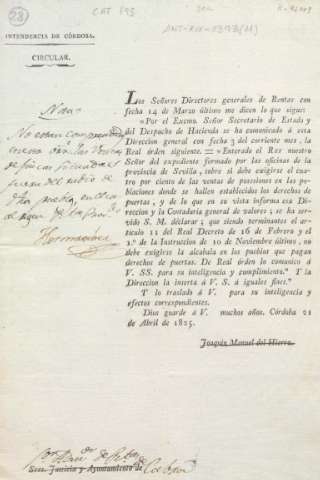 28
INTENDENCIA DE CÓRDOBA.
CIRCULAR.
Los Señores Directores generales de Rentas con
fecha 14 de Marzo último me dicen lo que sigue:
«Por el Excmo. Señor Secretario de Estado y
del Despacho de Hacienda se ha comunicado á esta
Direccion general con fecha 7 del corriente mes, la
Real órden siguiente. = Enterado el Rey nuestro
Señor del expediente formado por las oficinas de la
provincia de Sevilla, sobre si debe exigirse el cua-
tro por ciento de las ventas de posesiones en las po-
blaciones donde se hallen establecidos los derechos
de puertas, y de lo que en su vista informa esa Direc-
cion y la Contaduría general de valores; se ha servi-
do S. M. declarar; que siendo terminantes el artí-
culo 11 del Real Decreto de 16 de Febrero y el
1.º de la Instruccion de 10 de Noviembre último, no
debe exigirse la alcabala en los pueblos que pagan
derechos de puertas. De Real órden lo comunico á
V. SS. para su inteligencia y cumplimiento." Y la
Direccion la inserta á V. S. á iguales fines."
Y lo traslado á V. para su inteligencia y
efectos correspondientes.
Dios guarde á V. muchos años. Córdoba 21
de Abril de 1825.
Joaquin Manuel del Hierro.
Nota
No estan
de fincas
Sres. Justicia y Ayuntamiento de